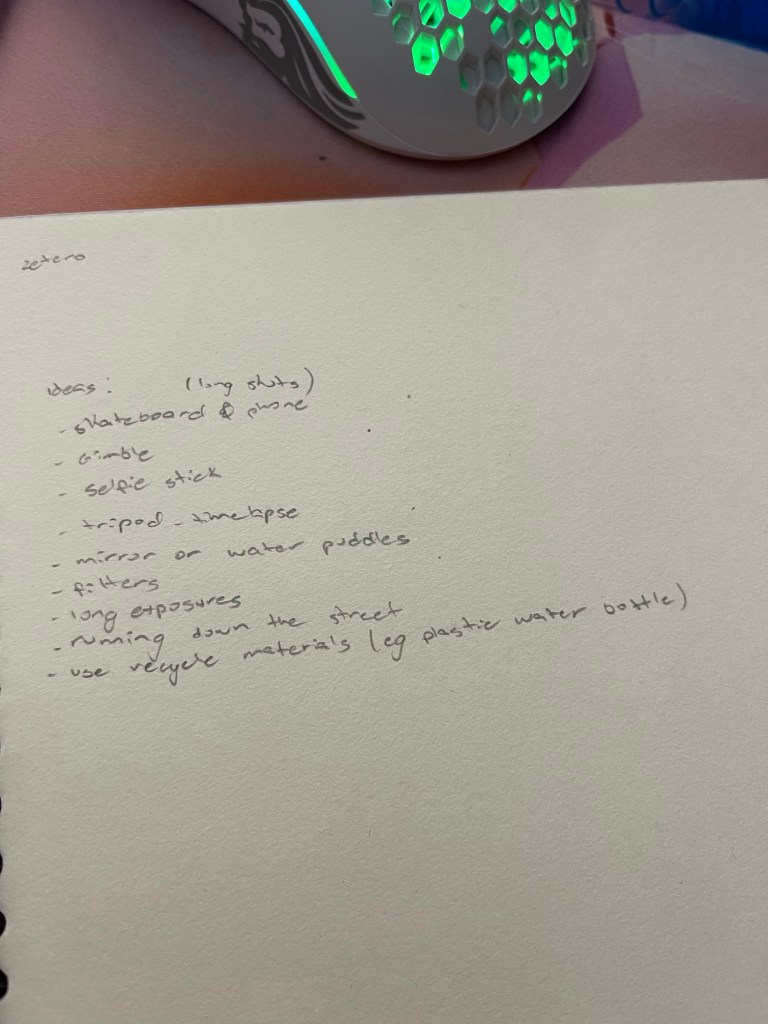 zetero
ideas: (long shots)
- skateboard & phone
- Gimble
- selfie stick
- tripod - timelapse
- mirror or water puddles
- filters
- long exposures
- running down the street
- use recycle materials (eg plastic water bottle)